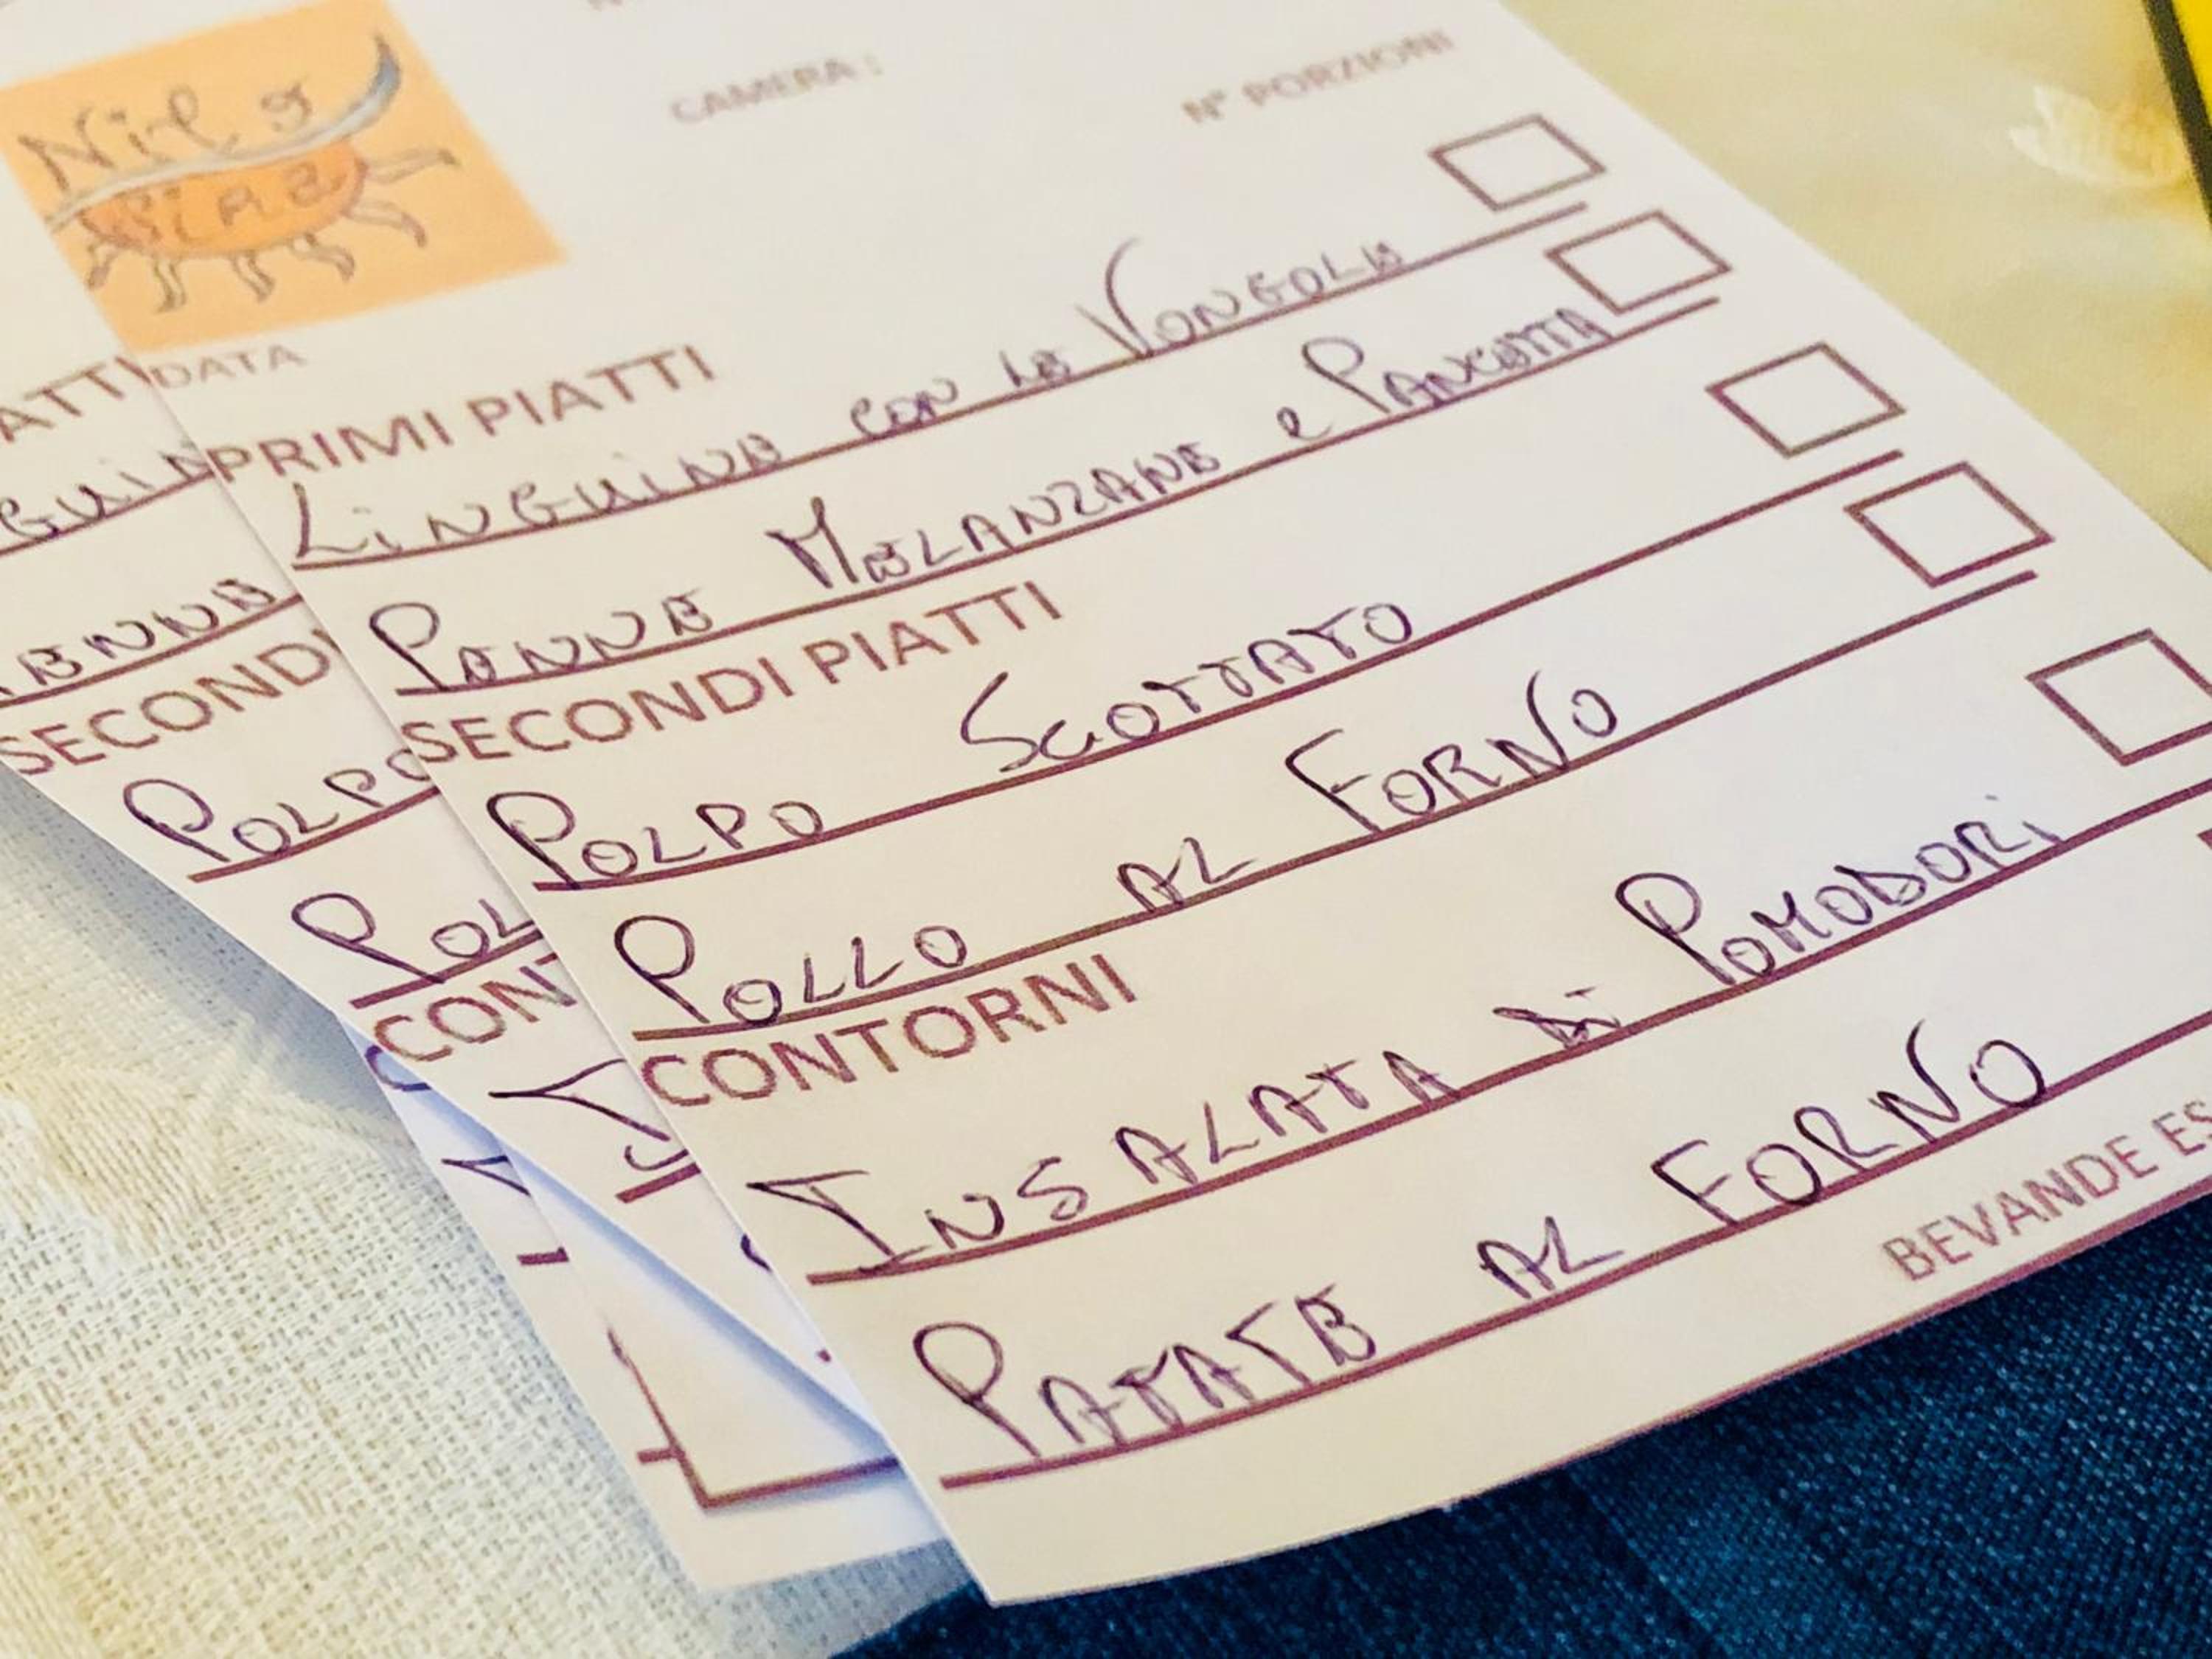 Nil 9
CAMERA:
N° PORZIONI
DATA
PRIMI PIATTI
LINGUINE CON LE VONGOLE
PENNE MELANZANE e PANCETTA
SECONDI PIATTI
POLPO SCOTTATO
POLLO AL FORNO
CONTORNI
INSALATA DI POMODORI
PATATE AL FORNO
BEVANDE ES
ATTI
GUIN
ENNE
SECONDI
POLPO
POL
CONT